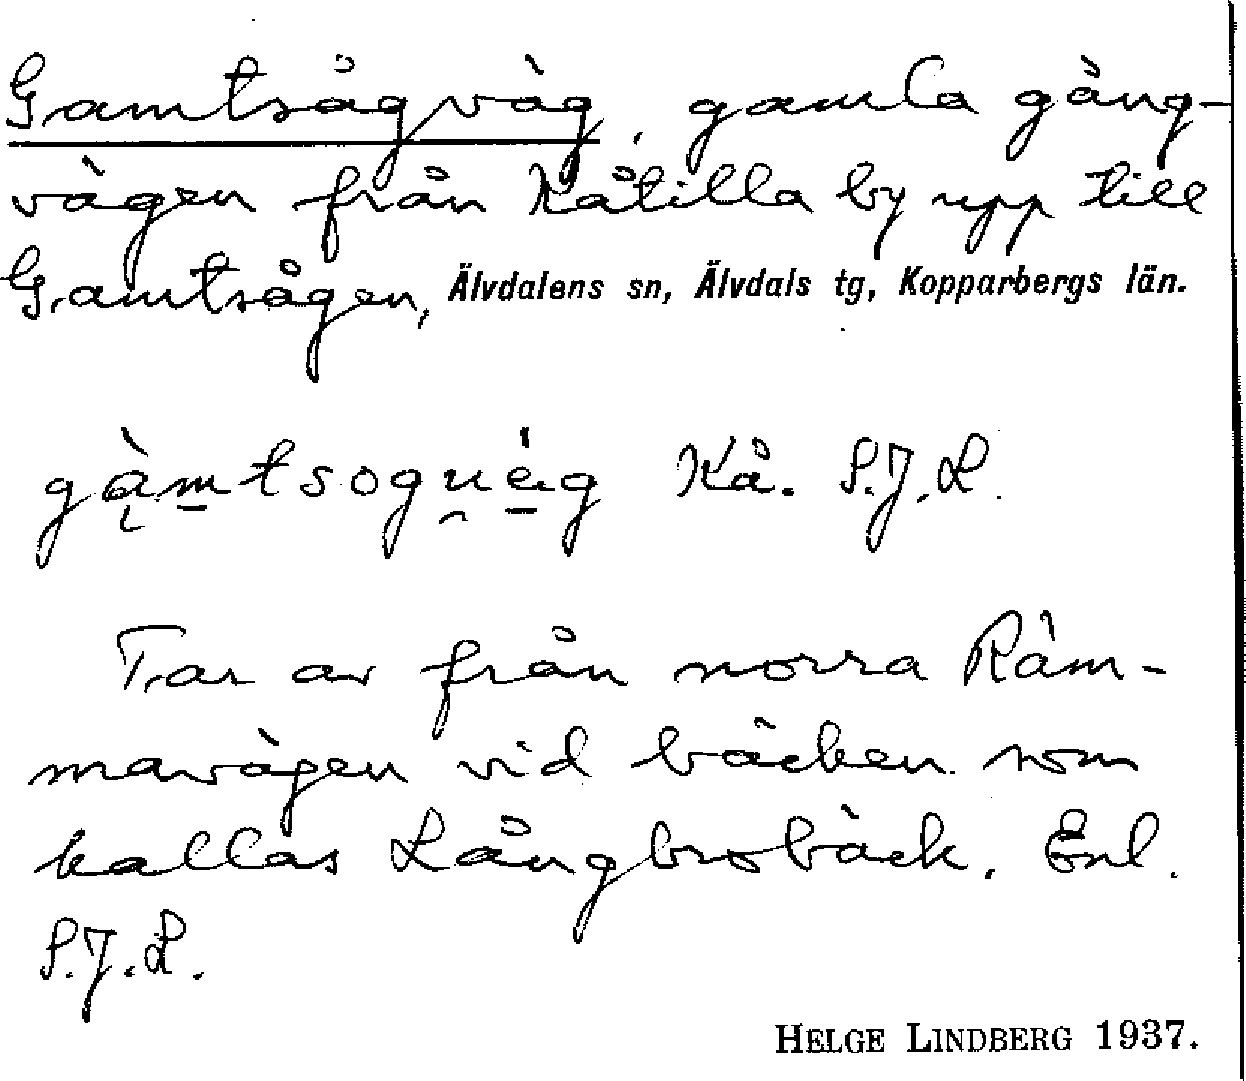 Gamtsågväg, gamla gång-
vägen från Kåtilla by upp till
Gamtsågen, Älvdalens sn, Älvdals tg, Kopparbergs län.
gą̀m̲tsogu̯é̲g Kå. S.J.L.
Tar av från norra Räm-
mavägen vid bäcken som
kallas Långbrobäck. Enl.
S.J.L.
HELGE LINDBERG 1937.